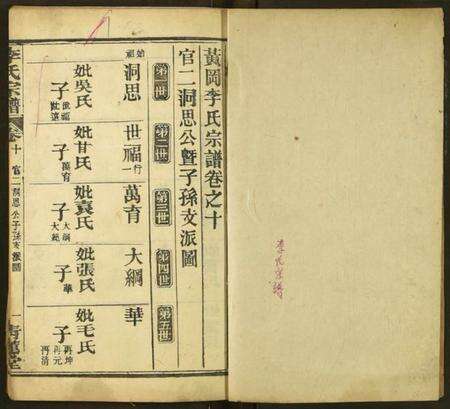 李氏宗譜
黃岡李氏宗譜卷之十
官二洞思公暨子孫支派圖
第一世
第二世
第三世
第四世
第五世
始祖
洞思
世福行一
萬育
大綱
華
妣吳氏
子世福
妣甘氏
子萬育
妣袁氏
子大綱
大純
妣張氏
子華
妣毛氏
子再坤
再元
再清
李氏宗譜
卷十
官二洞思公子孫支派圖
一